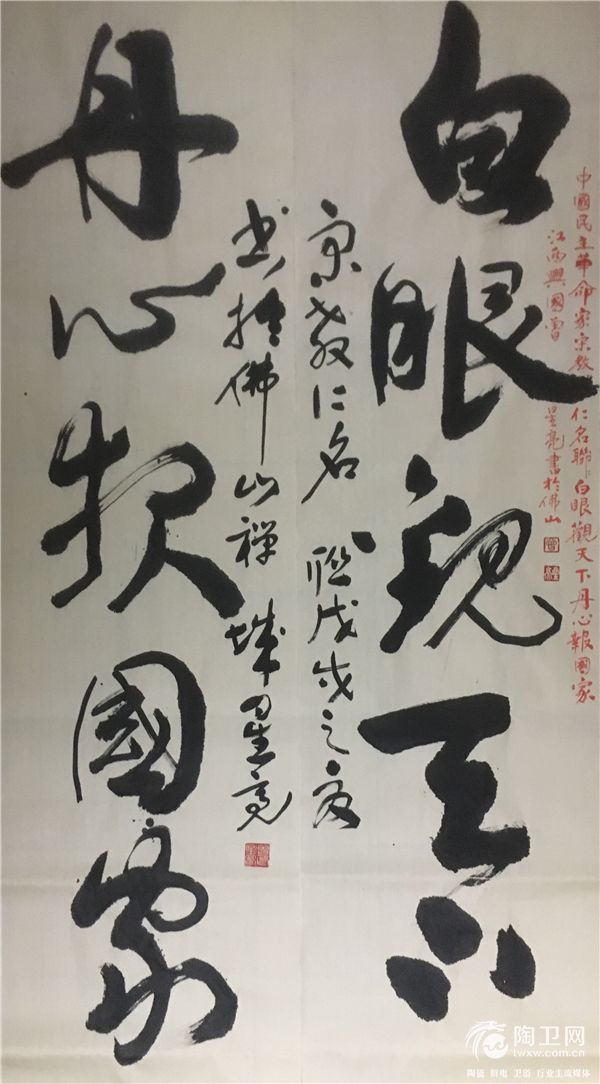 中國民主革命家宋教仁名聯:白眼觀天下丹心報國家
江西興國曾星亮書於佛山
白眼觀天下
宋教仁名聯戊戌之夏
书於佛山禅城星亮
丹心报國家
陶卫网
twxw.com.cn
陶瓷 厨电 卫浴 行业主流媒体